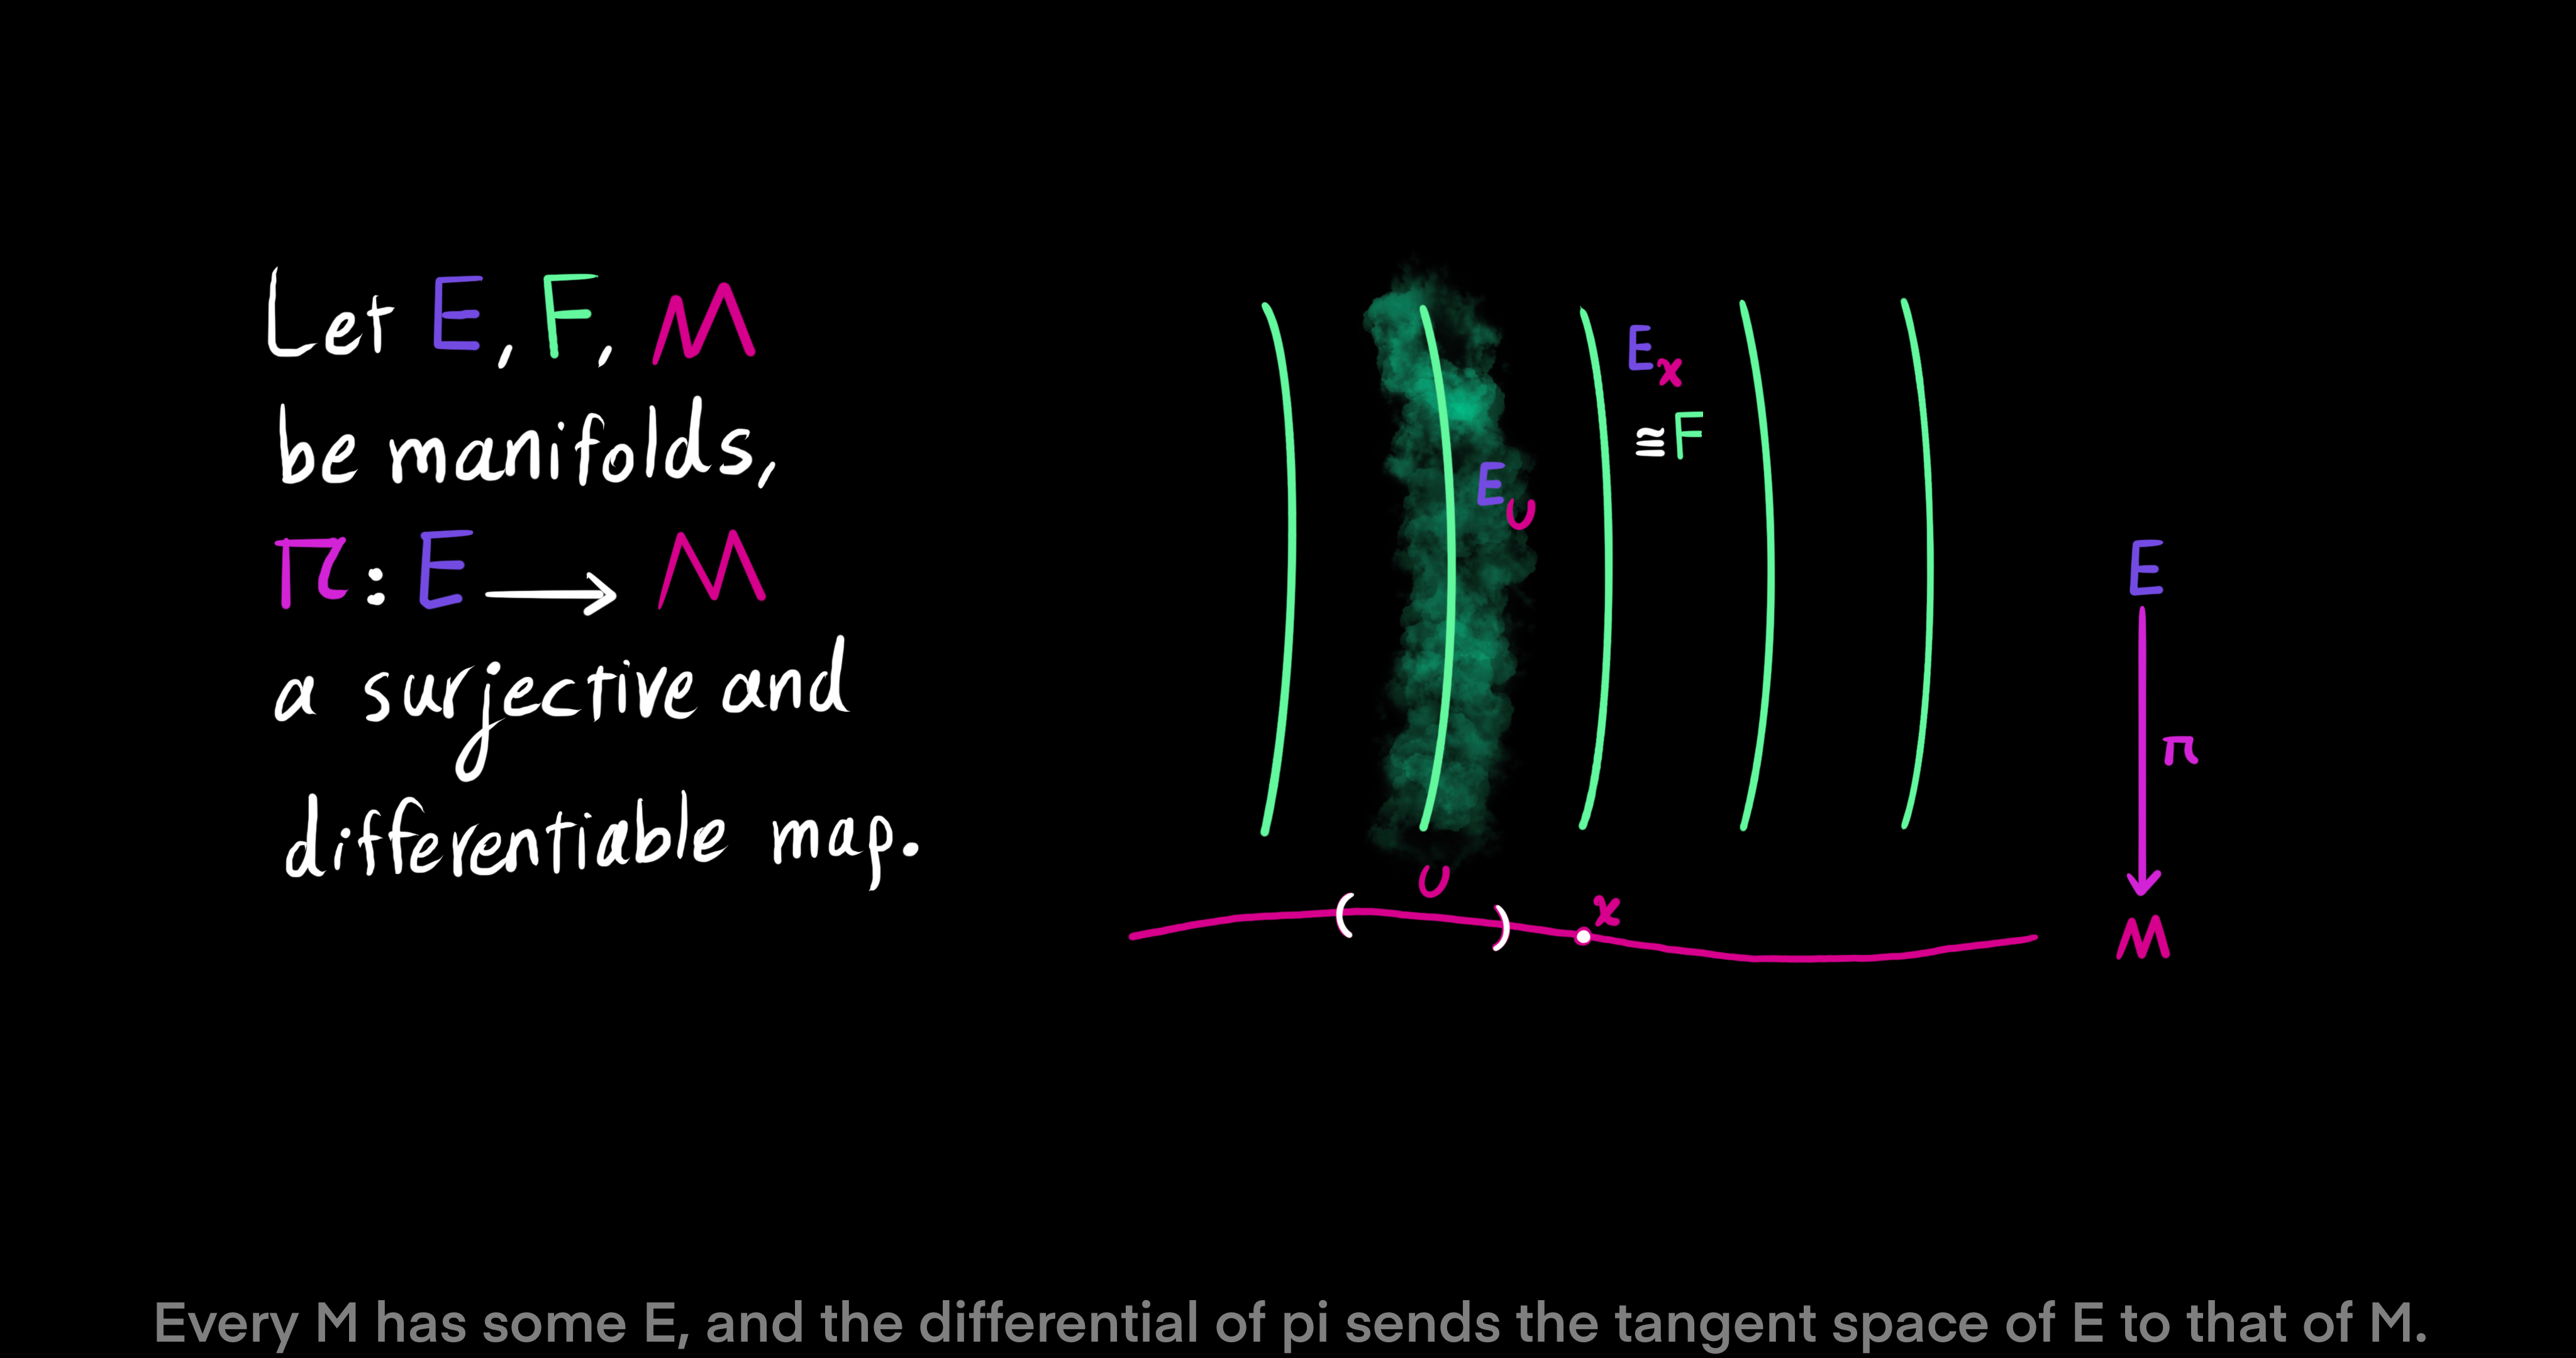 Let E, F, M
be manifolds,
π: E ⟶ M
a surjective and
differentiable map.
E_x
≅ F
E_U
E
π
U
x
M
Every M has some E, and the differential of pi sends the tangent space of E to that of M.